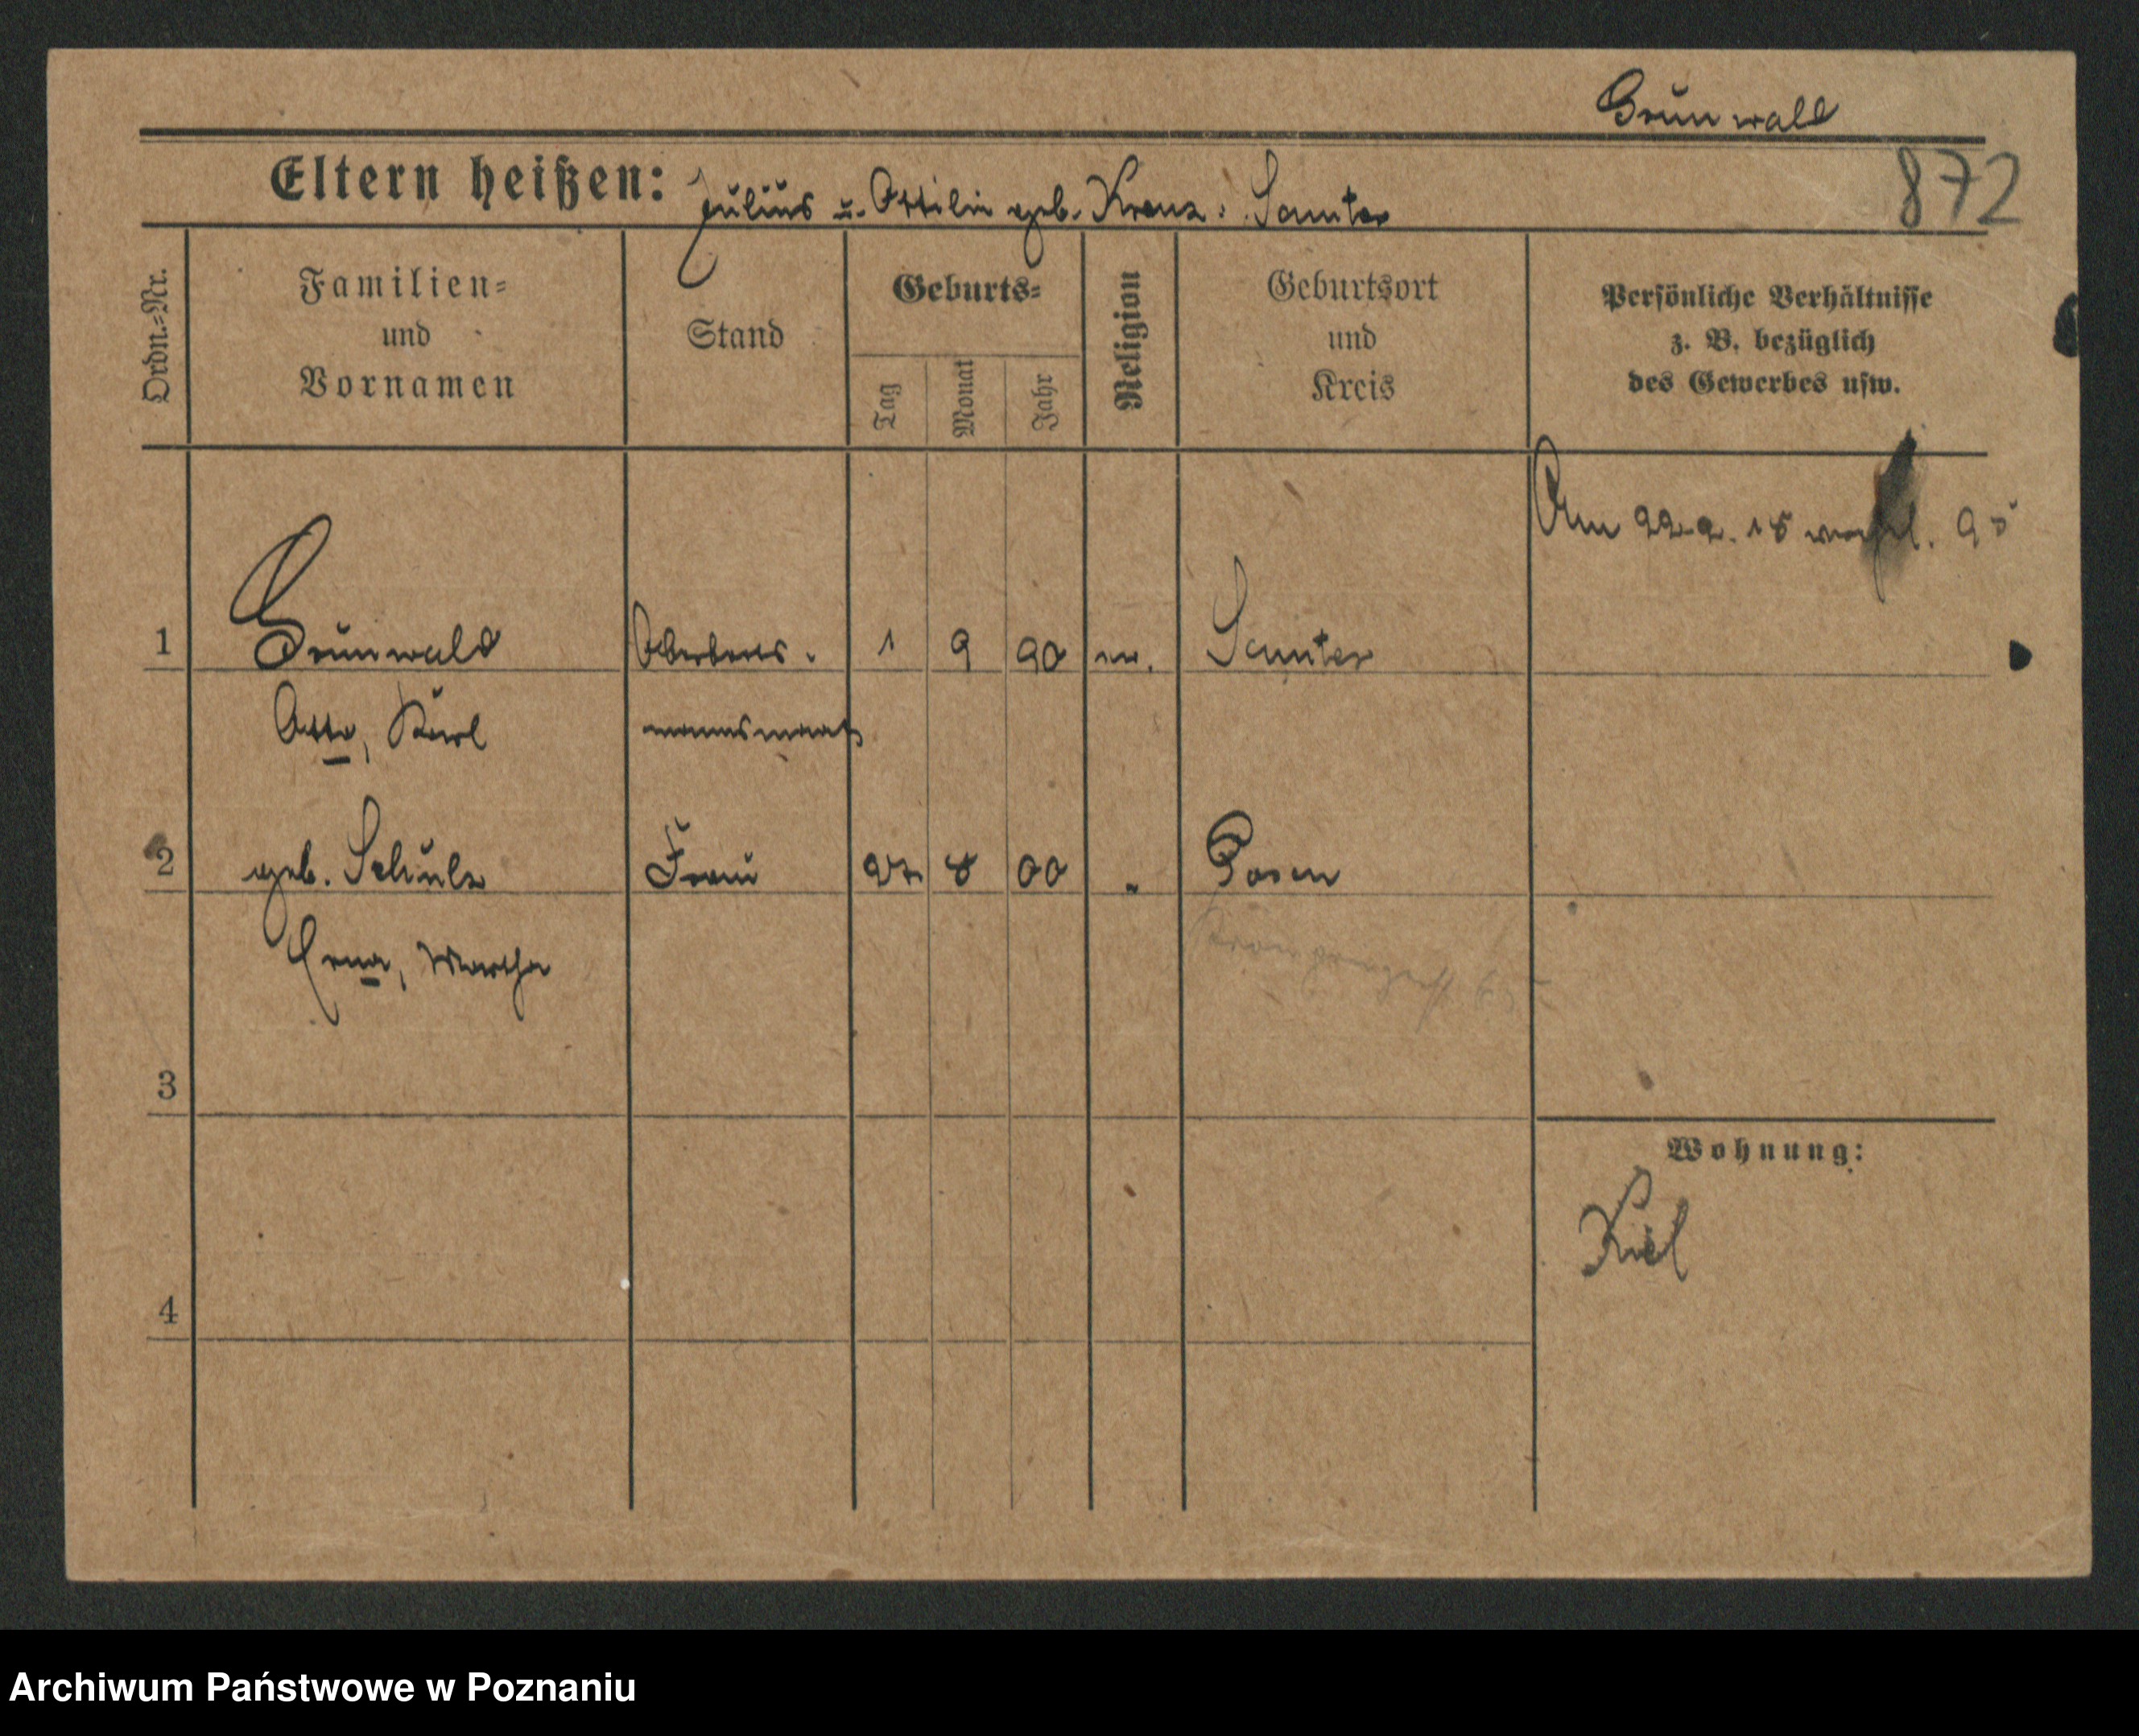 Grünwald
Eltern heißen: Julius u. Ottilie geb. Krenz : Samter
872
Ordn.=Nr.
Familien=
und
Vornamen
Stand
Geburts=
Tag
Monat
Jahr
Religion
Geburtsort
und
Kreis
Persönliche Verhältnisse
z. B. bezüglich
des Gewerbes usw.
Am 22.2.18
1 Grünwald Oberboots- 1 9 90 ev. Samter
Otto, Karl mannsmaat
2 geb. Schulz Frau 27 8 00 " Posen
Erna, Martha
3
Wohnung:
Kiel
4
Archiwum Państwowe w Poznaniu